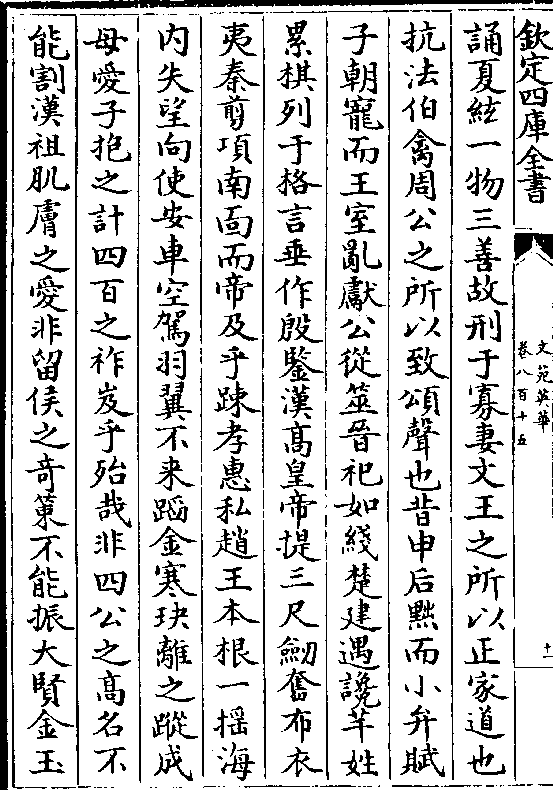 欽定四庫全書
文苑英華
卷八百十五
十一
誦夏絃一物三善故刑于寡妻文王之所以正家道也
抗法伯禽周公之所以致頌聲也昔申后黜而小弁賦
子朝寵而王室亂獻公從筮晉祀如綫楚建遇讒芊姓
累棋列于格言垂作殷鑒漢髙皇帝提三尺劒奮布衣
夷秦剪項南面而帝及乎踈孝惠私趙王本根一揺海
内失望向使安車空駕羽翼不来蹈金寒玦離之蹤成
母愛子抱之計四百之祚岌乎殆哉非四公之髙名不
能割漢祖肌膚之愛非留侯之竒策不能振大賢金玉